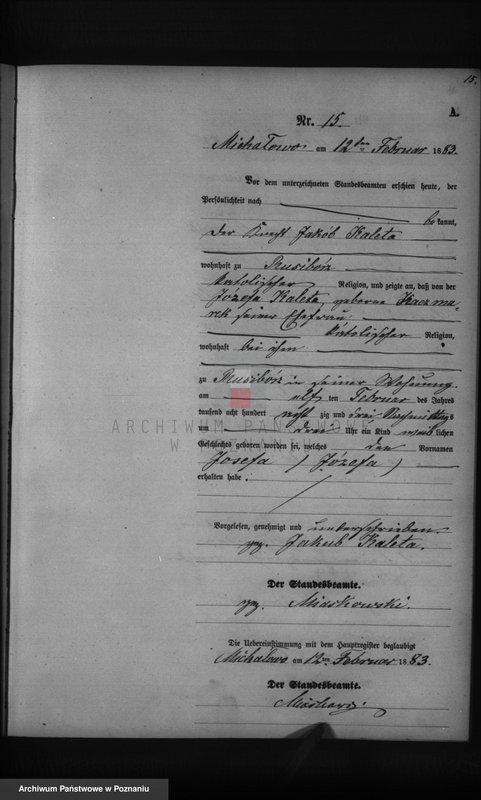 15.
A.
Nr. 15.
Michałowo am 12ten Februar 1883.
Vor dem unterzeichneten Standesbeamten erschien heute, der
Persönlichkeit nach
bekannt,
der Knecht Jakób Kaleta
wohnhaft zu Rusibórz
katolischer Religion, und zeigte an, daß von der
Józefa Kaleta, geborne Kaczma-
rek seiner Ehefrau
katolischer Religion,
wohnhaft bei ihm
zu Rusibórz in seiner Wohnung
am elf ten Februar des Jahres
tausend acht hundert acht zig und drei Nachmittags
um drei Uhr ein Kind weiblichen
Geschlechts geboren worden sei, welches den Vornamen
Josefa (Józefa)
erhalten habe.
Vorgelesen, genehmigt und unterschrieben.
gez. Jakub Kaleta.
Der Standesbeamte.
gez. Miaskowski.
Die Uebereinstimmung mit dem Hauptregister beglaubigt
Michałowo am 12ten Februar 1883.
Der Standesbeamte.
ARCHIWUM PAŃSTWOWE
W
Archiwum Państwowe w Poznaniu